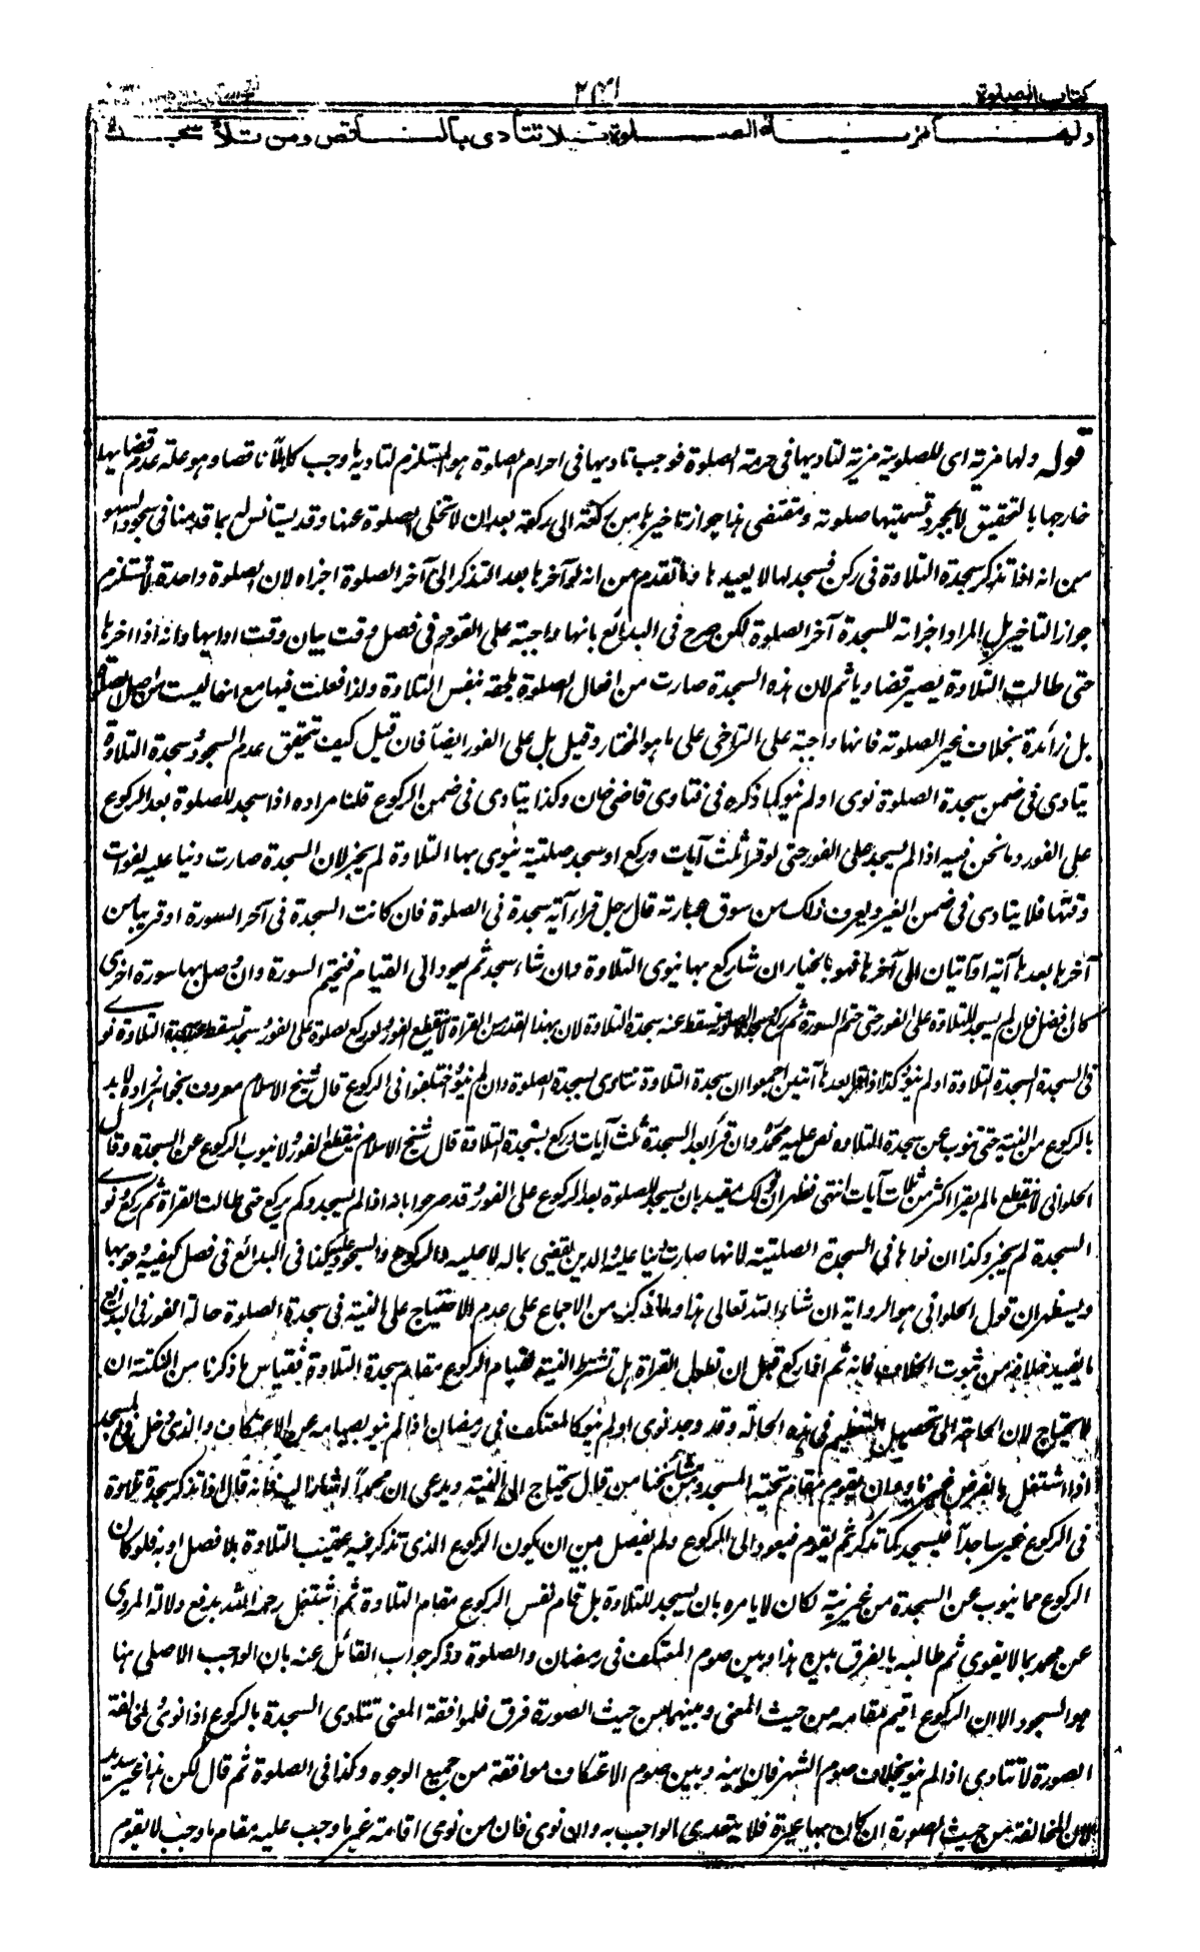 كتاب الصلوة
٢٤١
ولها مزية الصلوة فلا تتأدى بالناقص ومن تلا سجدة
قوله ولها مزية اى للصلوية مزية لتاديها فى حرمة الصلوة فوجب تاديها فى احرام الصلوة هو المستلزم لتاديها وجب كاملا ناقصا وهو علة عدم قضايها
خارجها بالتحقيق لا بمجرد تسميتها صلوتة ومقتضى هذا جواز تاخيرها من ركعة الى ركعة بعد ان لا تخلى الصلوة عنها وقد يستانس له بما قدمنا فى سجود السهو
من انه اذا تذكر سجدة التلاوة فى ركن فسجد لها لا يعيدها وما تقدم من انه لو آخرها بعد التذكر الى آخر الصلوة اجزاه لان الصلوة واحدة لا يستلزم
جواز التاخير بل المراد اجزائه للسجدة آخر الصلوة لكن صرح فى البدائع بانها واجبة على الفور فى فصل وقت بيان وقت ادايها وانه اذا اخرها
حتى طالت التلاوة يصير قضاء ويأثم لان هذه السجدة صارت من افعال الصلوة ملحقة بنفس التلاوة ولذا فعلت فيها مع انها ليست من اصل الصلوة
بل زائدة بخلاف غير الصلوتة فانها واجبة على التراخى على ما هو المختار وقيل بل على الفور ايضاً فان قيل كيف تحقيق عدم السجود وسجدة التلاوة
يتادى فى ضمن سجدة الصلوة نوى او لم ينو كما ذكره فى فتاوى قاضى خان وكذا يتادى فى ضمن الركوع قلنا مراده اذا سجد للصلوة بعد الركوع
على الفور وما نحن فيه اذا لم يسجد على الفور حتى لو قرا ثلث آيات وركع او سجد صلبية ينوى بها التلاوة لم يجز لان السجدة صارت دينا عليه لفوات
وقتها فلا يتادى فى ضمن الغير ويعرف ذلك من سوق عبارته قال رجل قراء آية سجدة فى الصلوة فان كانت السجدة فى آخر السورة او قريبا من
آخرها بعدها آية او آيتان الى آخرها فهو بالخيار ان شاء ركع بها ينوى التلاوة وان شاء سجد ثم يعود الى القيام فيختم السورة وان وصل بها سورة اخرى
كان افضل فان لم يسجد للتلاوة على الفور حتى ختم السورة ثم ركع وسجد لصلوته تسقط عنه سجدة التلاوة لان بهذا القدر من القراة لا ينقطع الفور ولو ركع لصلوة على الفور وسجد تسقط عنه سجدة التلاوة نوى
فى السجدة السجدة التلاوة او لم ينو وكذا اذا قرا بعدها آيتين اجمعوا ان سجدة التلاوة تتادى بسجدة الصلوة وان لم ينو واختلفوا فى الركوع قال شيخ الاسلام معروف بخواهر زاده لا بد
بالركوع من النية حتى ينوب عن سجدة التلاوة نص عليه محمد وان قرأ بعد السجدة ثلث آيات وركع بسجدة التلاوة قال شيخ الاسلام ينقطع الفور ولا ينوب الركوع عن السجدة وقال
الحلوانى لا ينقطع ما لم يقرا اكثر من ثلاث آيات انتهى فظهر ان ذلك مقيد بان يسجد للصلوة بعد الركوع على الفور وقد صرحوا بانه اذا لم يسجد ولم يركع حتى طالت القراة ثم ركع ونوى
السجدة لم يجز وكذا ان نواها فى السجدة الصلبية لانها صارت دينا عليه والدين يقضى بما له لا عليه والركوع والسجود عليه كذا فى البدائع فى فصل كيفية وجوبها
ويسظهر ان قول الحلوانى هو الرواية ان شاء الله تعالى هذا وما ذكر من الاجماع على عدم الاحتياج على النية فى سجدة الصلوة حالة الفور فى البدائع
ما يفيد خلافه من ثبوت الخلاف فانه ثم اذا ركع قبل ان تطول القراة هل تشترط النية لقيام الركوع مقام سجدة التلاوة فقياس ما ذكرنا من النكتة ان
لا يحتاج لان الحاجة الى تحصيل التعظيم فى هذه الحالة وقد وجد نوى او لم ينو كالمعتكف فى رمضان اذا لم ينو بصيامه عن الاعتكاف والذى دخل فى المسجد
اذا اشتغل بالفرض غير ناو ان يقوم مقام تحية المسجد ومن مشائخنا من قال يحتاج الى النية ويدعى ان محمداً اشار اليه فانه قال اذا تذكر سجدة تلاوة
فى الركوع غير ساجداً فليسجد كما تذكر ثم يقوم فيعود الى الركوع ولم يفصل بين ان يكون الركوع الذى تذكر فيه عقيب التلاوة بلا فصل او به فلو كان
الركوع مما ينوب عن السجدة من غير نية لكان لا يامره بان يسجد للتلاوة بل قام نفس الركوع مقام التلاوة ثم اشتغل رحمه الله بدفع دلالة المروى
عن محمد بما لا يقوى ثم طالبه بالفرق بين هذا وبين صوم المعتكف فى رمضان والصلوة وذكر جواب القائل عنه بان الواجب الاصلى هنا
هو السجود الا ان الركوع اقيم مقامه من حيث المعنى وبينهما من حيث الصورة فرق فلموافقة المعنى تتادى السجدة بالركوع اذا نوى ولمخالفة
الصورة لا تتادى اذا لم ينو بخلاف صوم الشهر فان بينه وبين صوم الاعتكاف موافقة من جميع الوجوه وكذا فى الصلوة ثم قال لكن هذا غير سديد
لان المخالفة من حيث الصورة ان كان بها عبرة فلا يتعدى الواجب به وان نوى فان من نوى اقامة غير ما وجب عليه مقام ما وجب لا يقوم